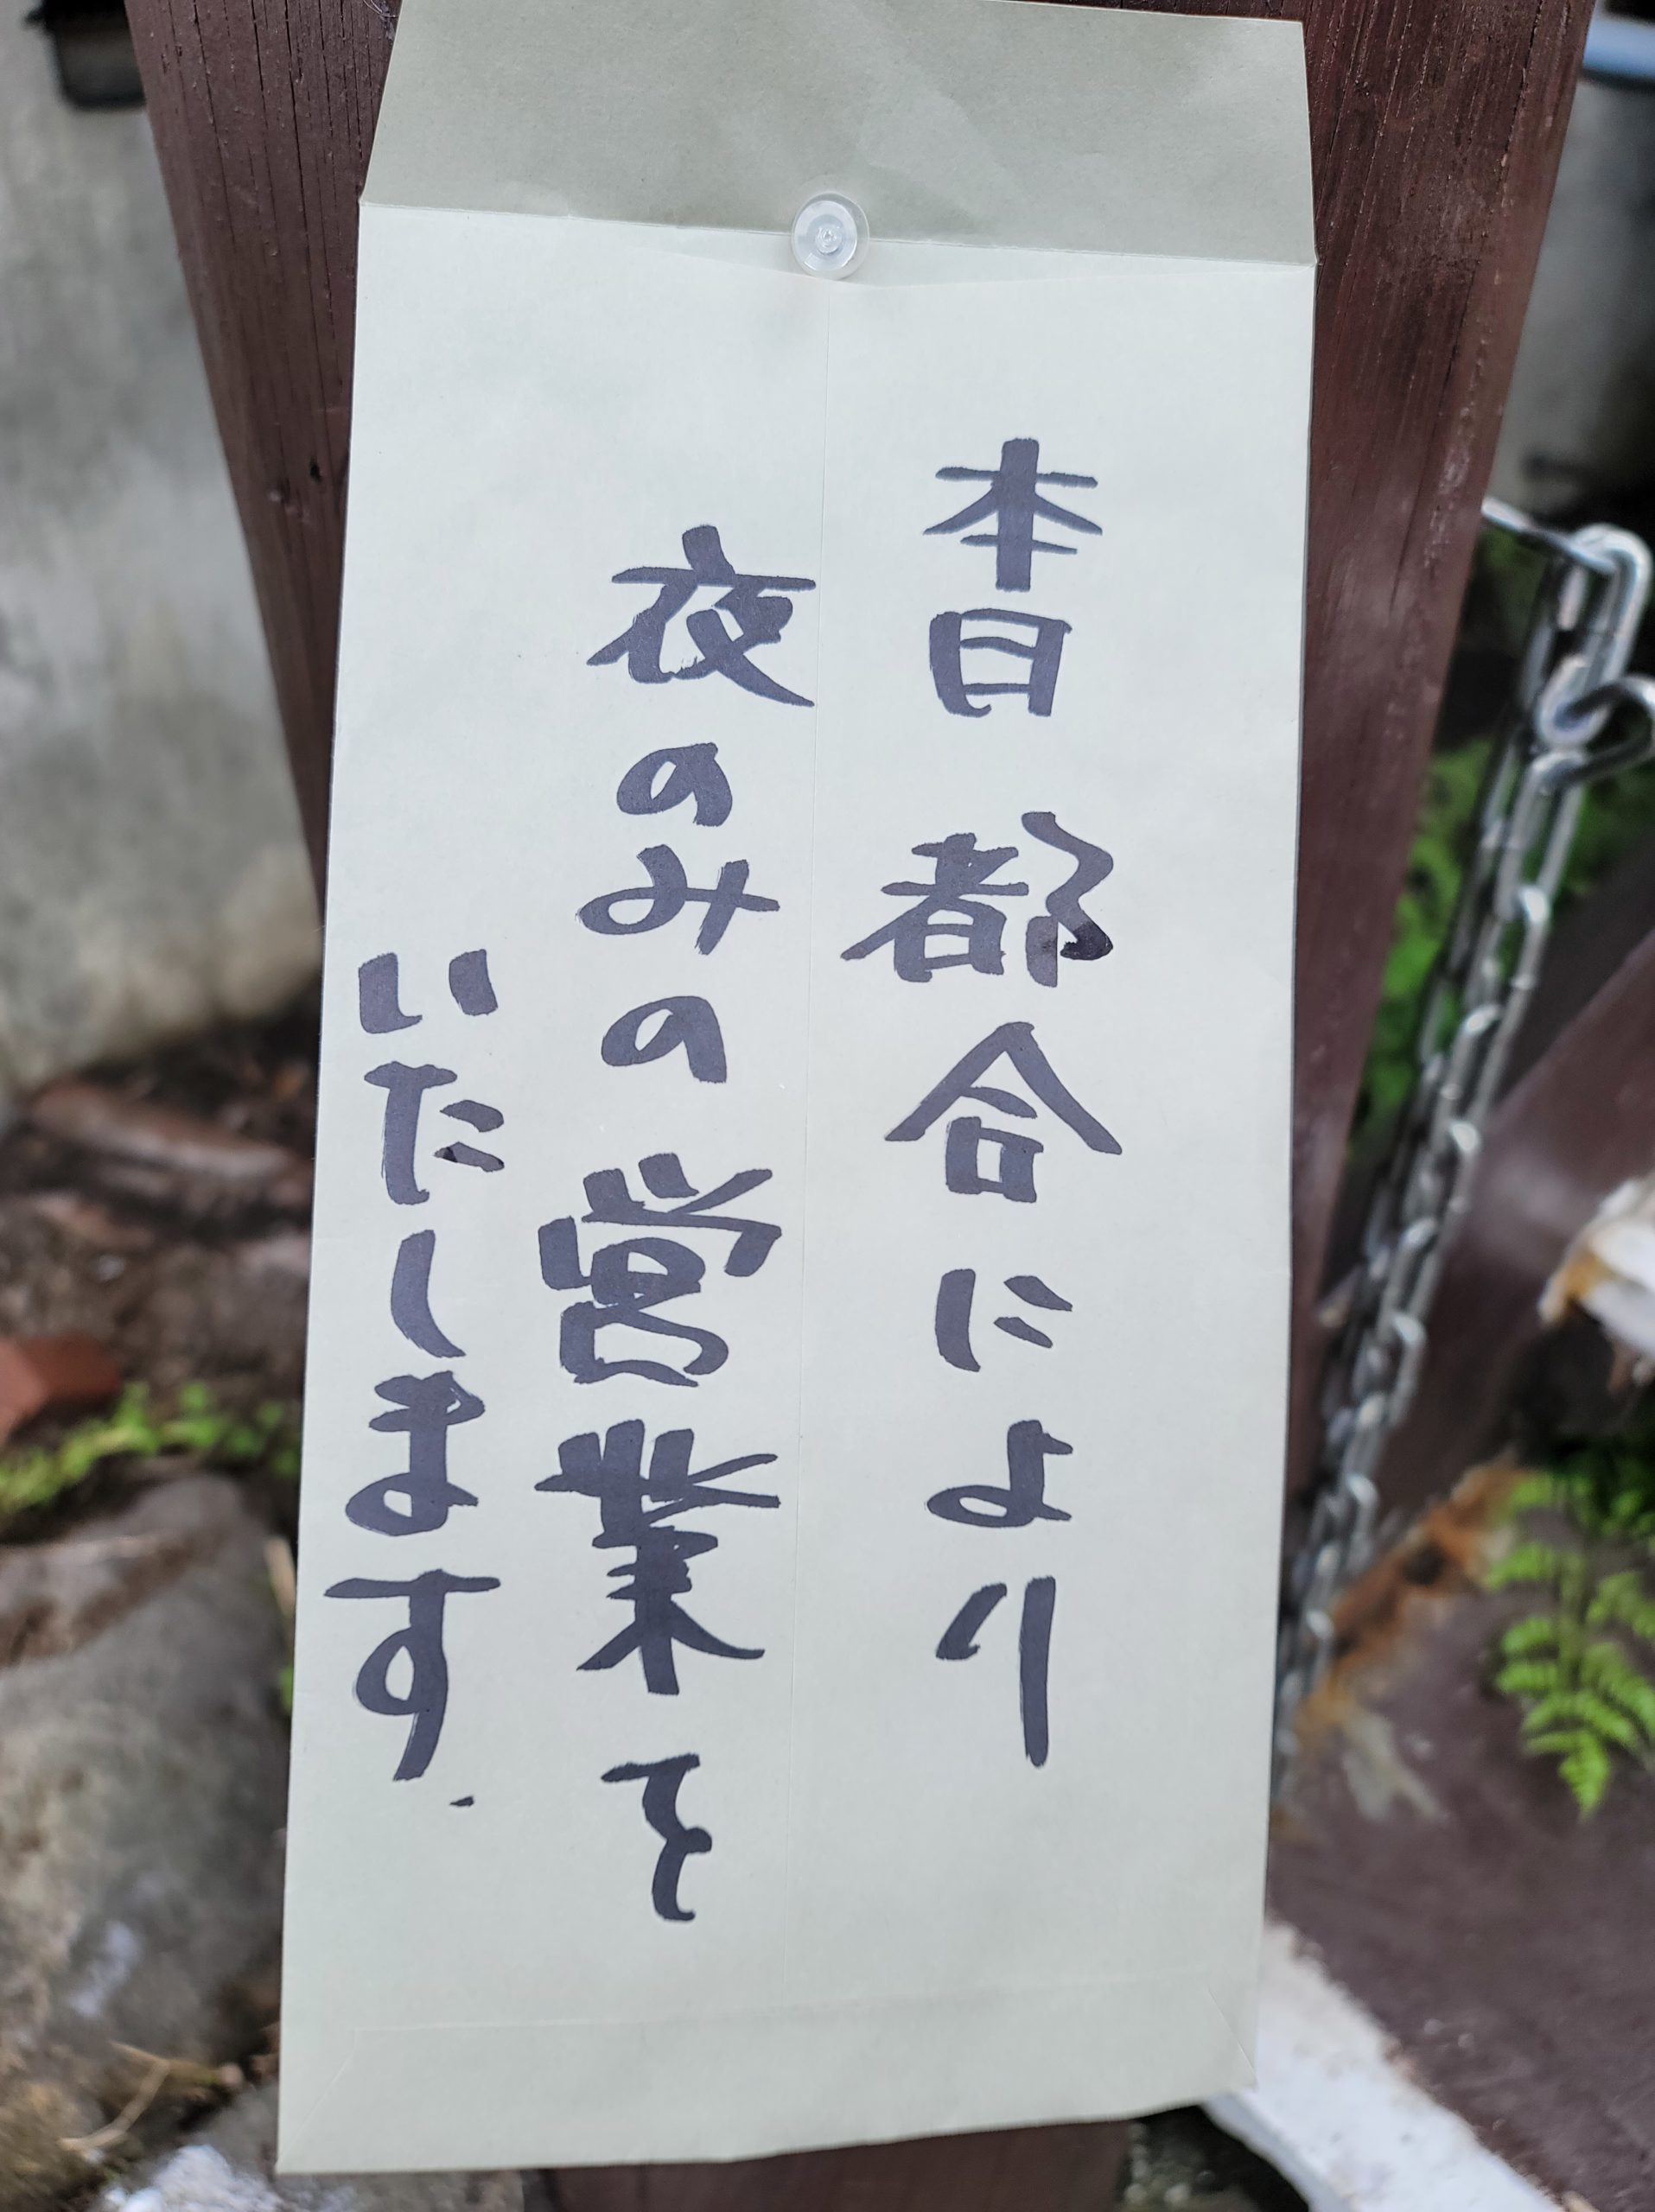 本日 都合により
夜のみの営業を
いたします.